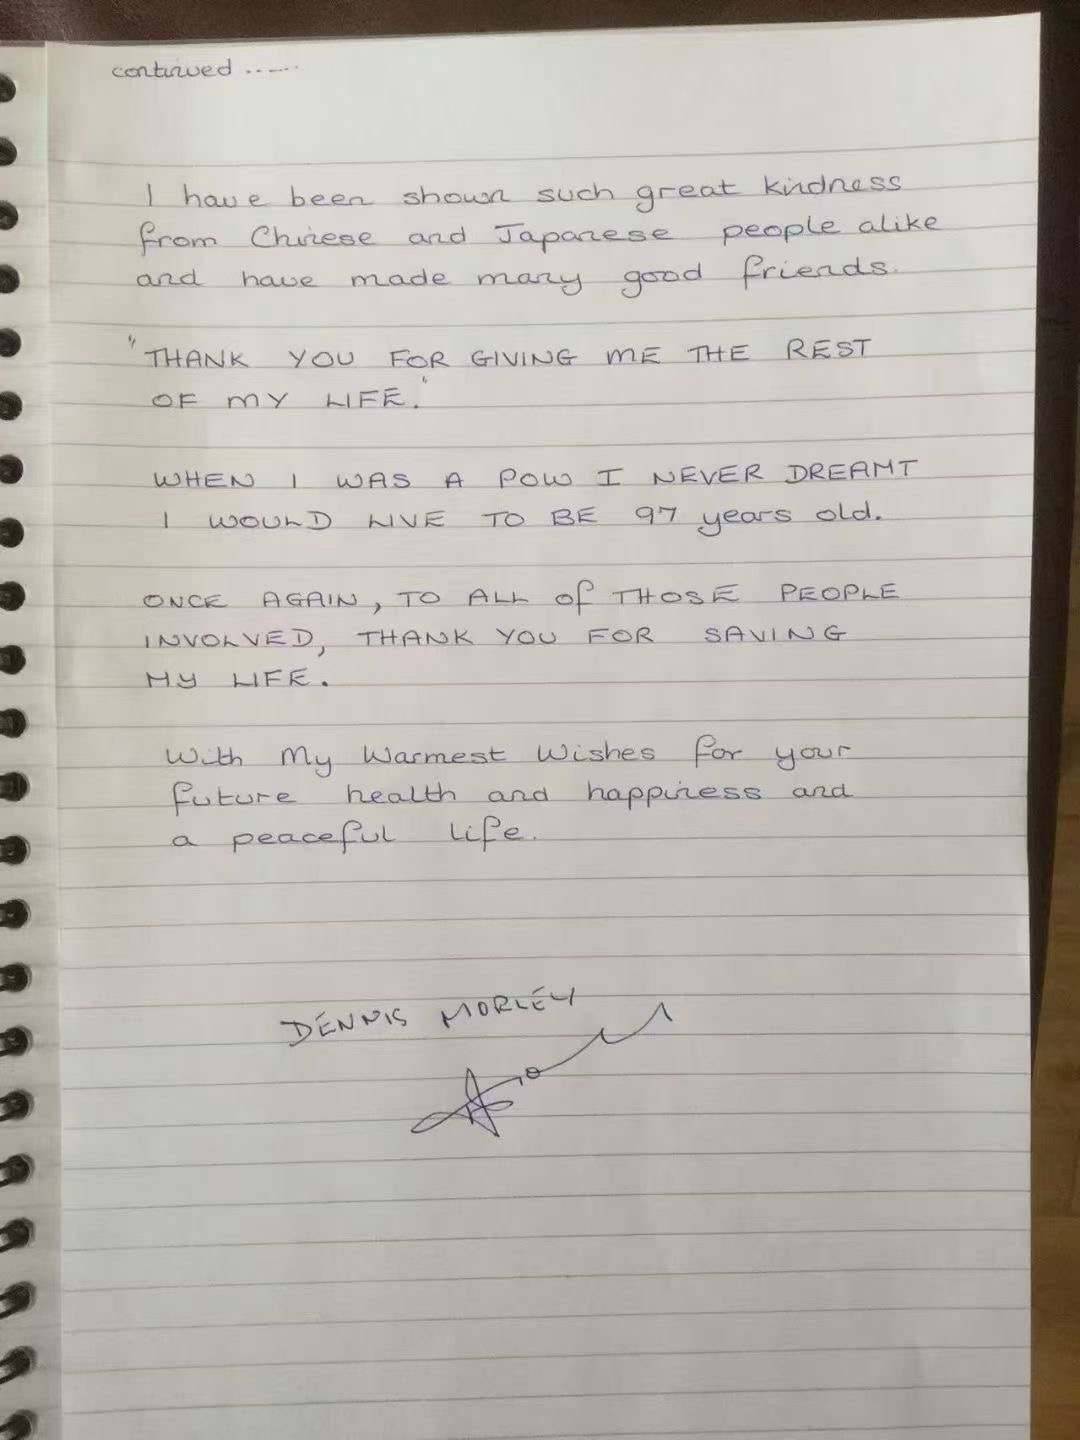 continued ......
I have been shown such great kindness
from Chinese and Japanese people alike
and have made many good friends.
"THANK YOU FOR GIVING ME THE REST
OF MY LIFE."
WHEN I WAS A POW I NEVER DREAMT
I WOULD LIVE TO BE 97 years old.
ONCE AGAIN, TO ALL of THOSE PEOPLE
INVOLVED, THANK YOU FOR SAVING
MY LIFE.
With My Warmest Wishes for your
future health and happiness and
a peaceful life.
DENNIS MORLEY